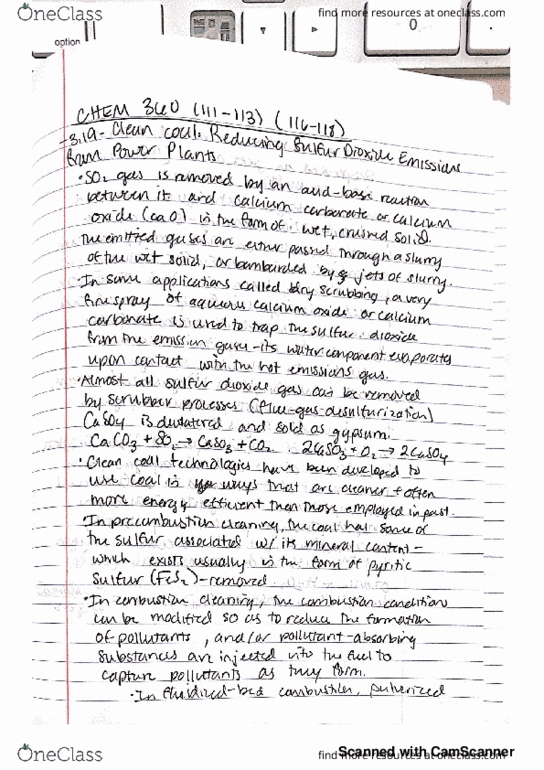 OneClass
find more resources at oneclass.com
option
CHEM 360 (111-113) (116-118)
-3.19- Clean coal: Reducing Sulfur Dioxide Emissions
from Power Plants
• SO2 gas is removed by an acid-base reaction
between it and calcium carbonate or calcium
oxide (CaO) in the form of wet, crushed solid.
The emitted gases are either passed through a slurry
of the wet solid, or bombarded by jets of slurry.
• In some applications called dry scrubbing, a very
fine spray of aqueous calcium oxide or calcium
carbonate is used to trap the sulfur dioxide
from the emission gases - its water component evaporates
upon contact with the hot emissions gas.
• Almost all sulfur dioxide gas can be removed
by scrubber processes (flue-gas desulfurization)
CaSO4 is dewatered and sold as gypsum.
CaCO3 + SO2 → CaSO3 + CO2 2CaSO3 + O2 → 2CaSO4
• Clean coal technologies have been developed to
use coal in ways that are cleaner + often
more energy efficient than those employed in past.
• In precombustion cleaning, the coal has some of
the sulfur associated w/ its mineral content -
which exists usually in the form of pyritic
sulfur (FeS2) - removed
• In combustion cleaning, the combustion conditions
can be modified so as to reduce the formation
of pollutants, and/or pollutant-absorbing
substances are injected into the fuel to
capture pollutants as they form.
• In fluidized-bed combustion, pulverized
OneClass
find more resources at oneclass.com
Scanned with CamScanner